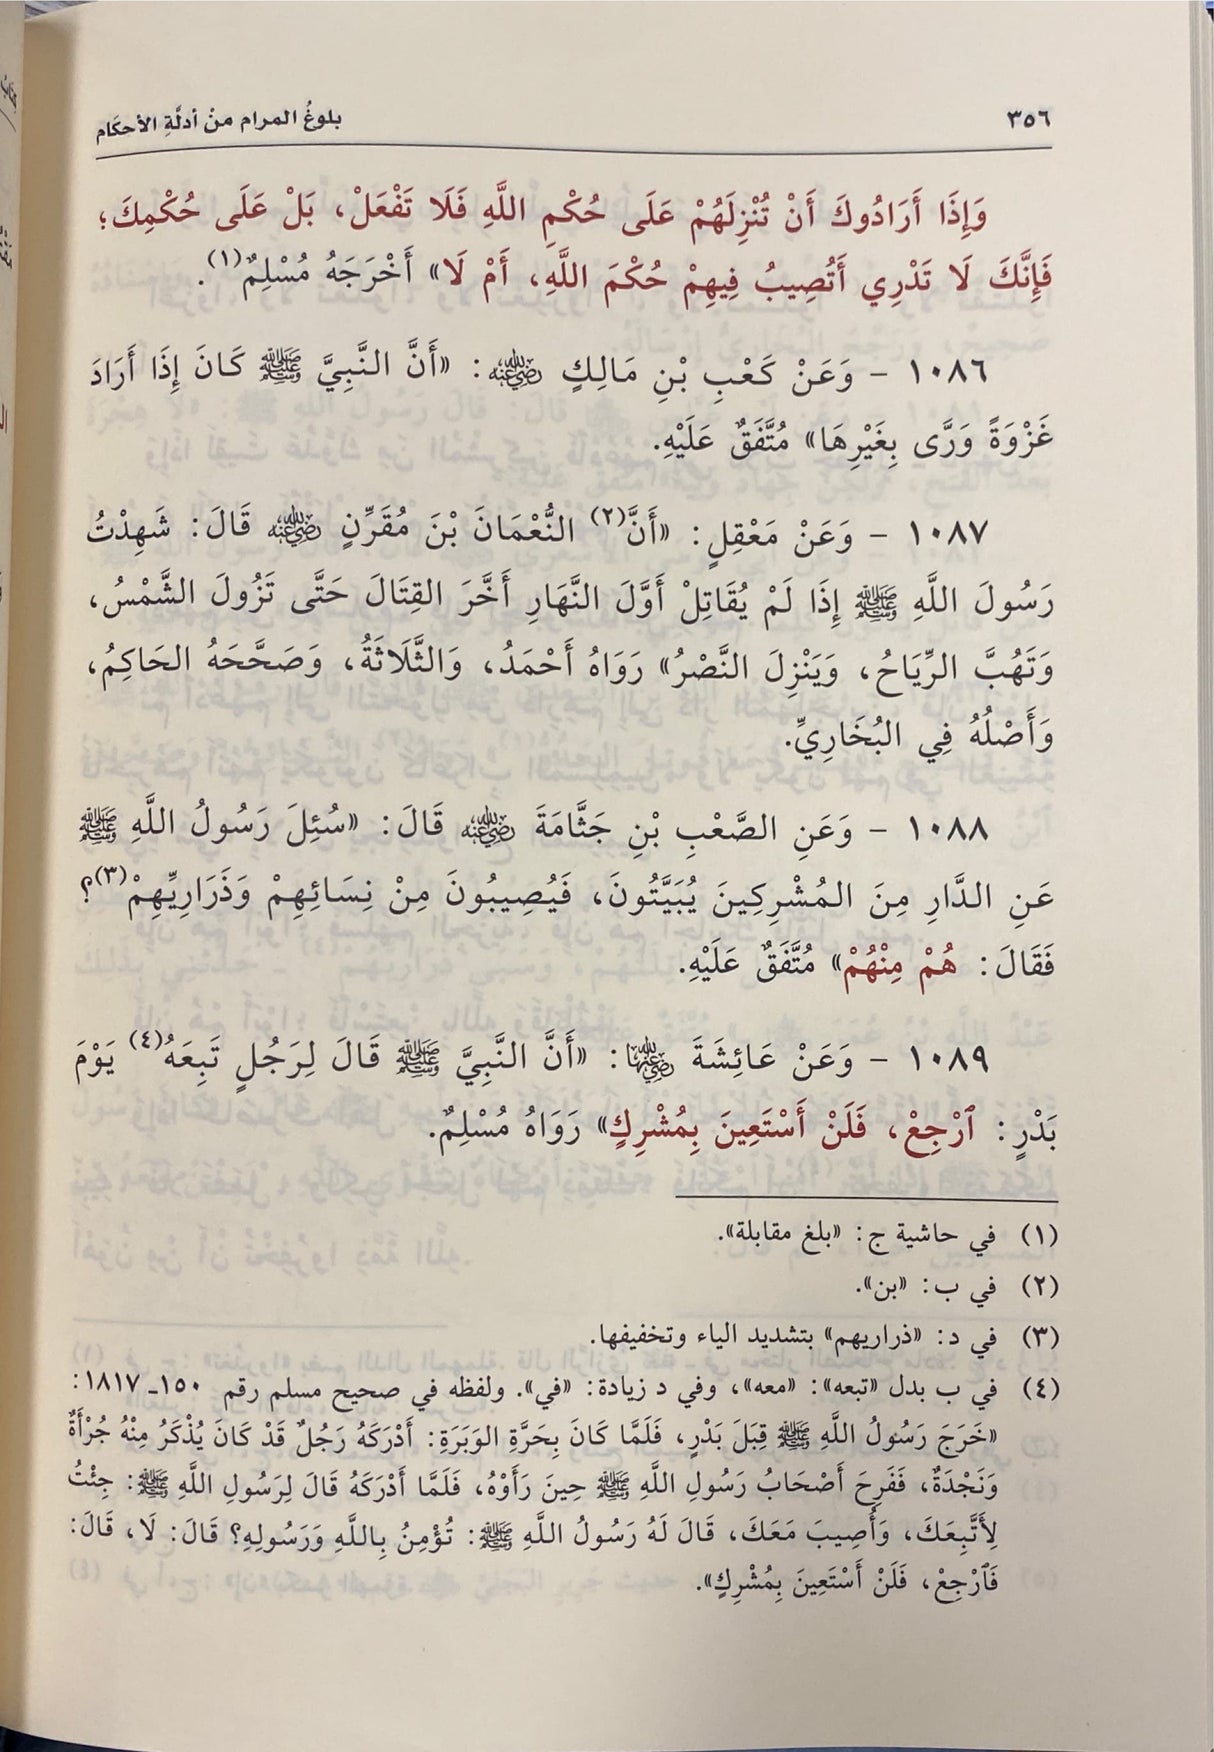 ٣٥٦
بلوغُ المرام منْ أدلَّةِ الأحكَام
وَإِذَا أَرَادُوكَ أَنْ تُنْزِلَهُمْ عَلَى حُكْمِ اللَّهِ فَلَا تَفْعَلْ، بَلْ عَلَى حُكْمِكَ؛
فَإِنَّكَ لَا تَدْرِي أَتُصِيبُ فِيهِمْ حُكْمَ اللَّهِ، أَمْ لَا» أَخْرَجَهُ مُسْلِمٌ(١).
١٠٨٦ - وَعَنْ كَعْبِ بْنِ مَالِكٍ رضي الله عنه: «أَنَّ النَّبِيَّ ﷺ كَانَ إِذَا أَرَادَ
غَزْوَةً وَرَّى بِغَيْرِهَا» مُتَّفَقٌ عَلَيْهِ.
١٠٨٧ - وَعَنْ مَعْقِلٍ: «أَنَّ(٢) النُّعْمَانَ بْنَ مُقَرِّنٍ رضي الله عنه قَالَ: شَهِدْتُ
رَسُولَ اللَّهِ ﷺ إِذَا لَمْ يُقَاتِلْ أَوَّلَ النَّهَارِ أَخَّرَ القِتَالَ حَتَّى تَزُولَ الشَّمْسُ،
وَتَهُبَّ الرِّيَاحُ، وَيَنْزِلَ النَّصْرُ» رَوَاهُ أَحْمَدُ، وَالثَّلَاثَةُ، وَصَحَّحَهُ الحَاكِمُ،
وَأَصْلُهُ فِي البُخَارِيِّ.
١٠٨٨ - وَعَنِ الصَّعْبِ بْنِ جَثَّامَةَ رضي الله عنه قَالَ: «سُئِلَ رَسُولُ اللَّهِ ﷺ
عَنِ الدَّارِ مِنَ المُشْرِكِينَ يُبَيَّتُونَ، فَيُصِيبُونَ مِنْ نِسَائِهِمْ وَذَرَارِيِّهِمْ(٣)؟
فَقَالَ: هُمْ مِنْهُمْ» مُتَّفَقٌ عَلَيْهِ.
١٠٨٩ - وَعَنْ عَائِشَةَ رضي الله عنها: «أَنَّ النَّبِيَّ ﷺ قَالَ لِرَجُلٍ تَبِعَهُ(٤) يَوْمَ
بَدْرٍ: ٱرْجِعْ، فَلَنْ أَسْتَعِينَ بِمُشْرِكٍ» رَوَاهُ مُسْلِمٌ.
(١) في حاشية ج: «بلغ مقابلة».
(٢) في ب: «بن».
(٣) في د: «ذراريهم» بتشديد الياء وتخفيفها.
(٤) في ب بدل «تبعه»: «معه»، وفي د زيادة: «في». ولفظه في صحيح مسلم رقم ١٥٠ـ ١٨١٧:
«خَرَجَ رَسُولُ اللَّهِ ﷺ قِبَلَ بَدْرٍ، فَلَمَّا كَانَ بِحَرَّةِ الوَبَرَةِ: أَدْرَكَهُ رَجُلٌ قَدْ كَانَ يُذْكَرُ مِنْهُ جُرْأَةٌ
وَنَجْدَةٌ، فَفَرِحَ أَصْحَابُ رَسُولِ اللَّهِ ﷺ حِينَ رَأَوْهُ، فَلَمَّا أَدْرَكَهُ قَالَ لِرَسُولِ اللَّهِ ﷺ: جِئْتُ
لِأَتَّبِعَكَ، وَأُصِيبَ مَعَكَ، قَالَ لَهُ رَسُولُ اللَّهِ ﷺ: تُؤْمِنُ بِاللَّهِ وَرَسُولِهِ؟ قَالَ: لَا، قَالَ:
فَٱرْجِعْ، فَلَنْ أَسْتَعِينَ بِمُشْرِكٍ».